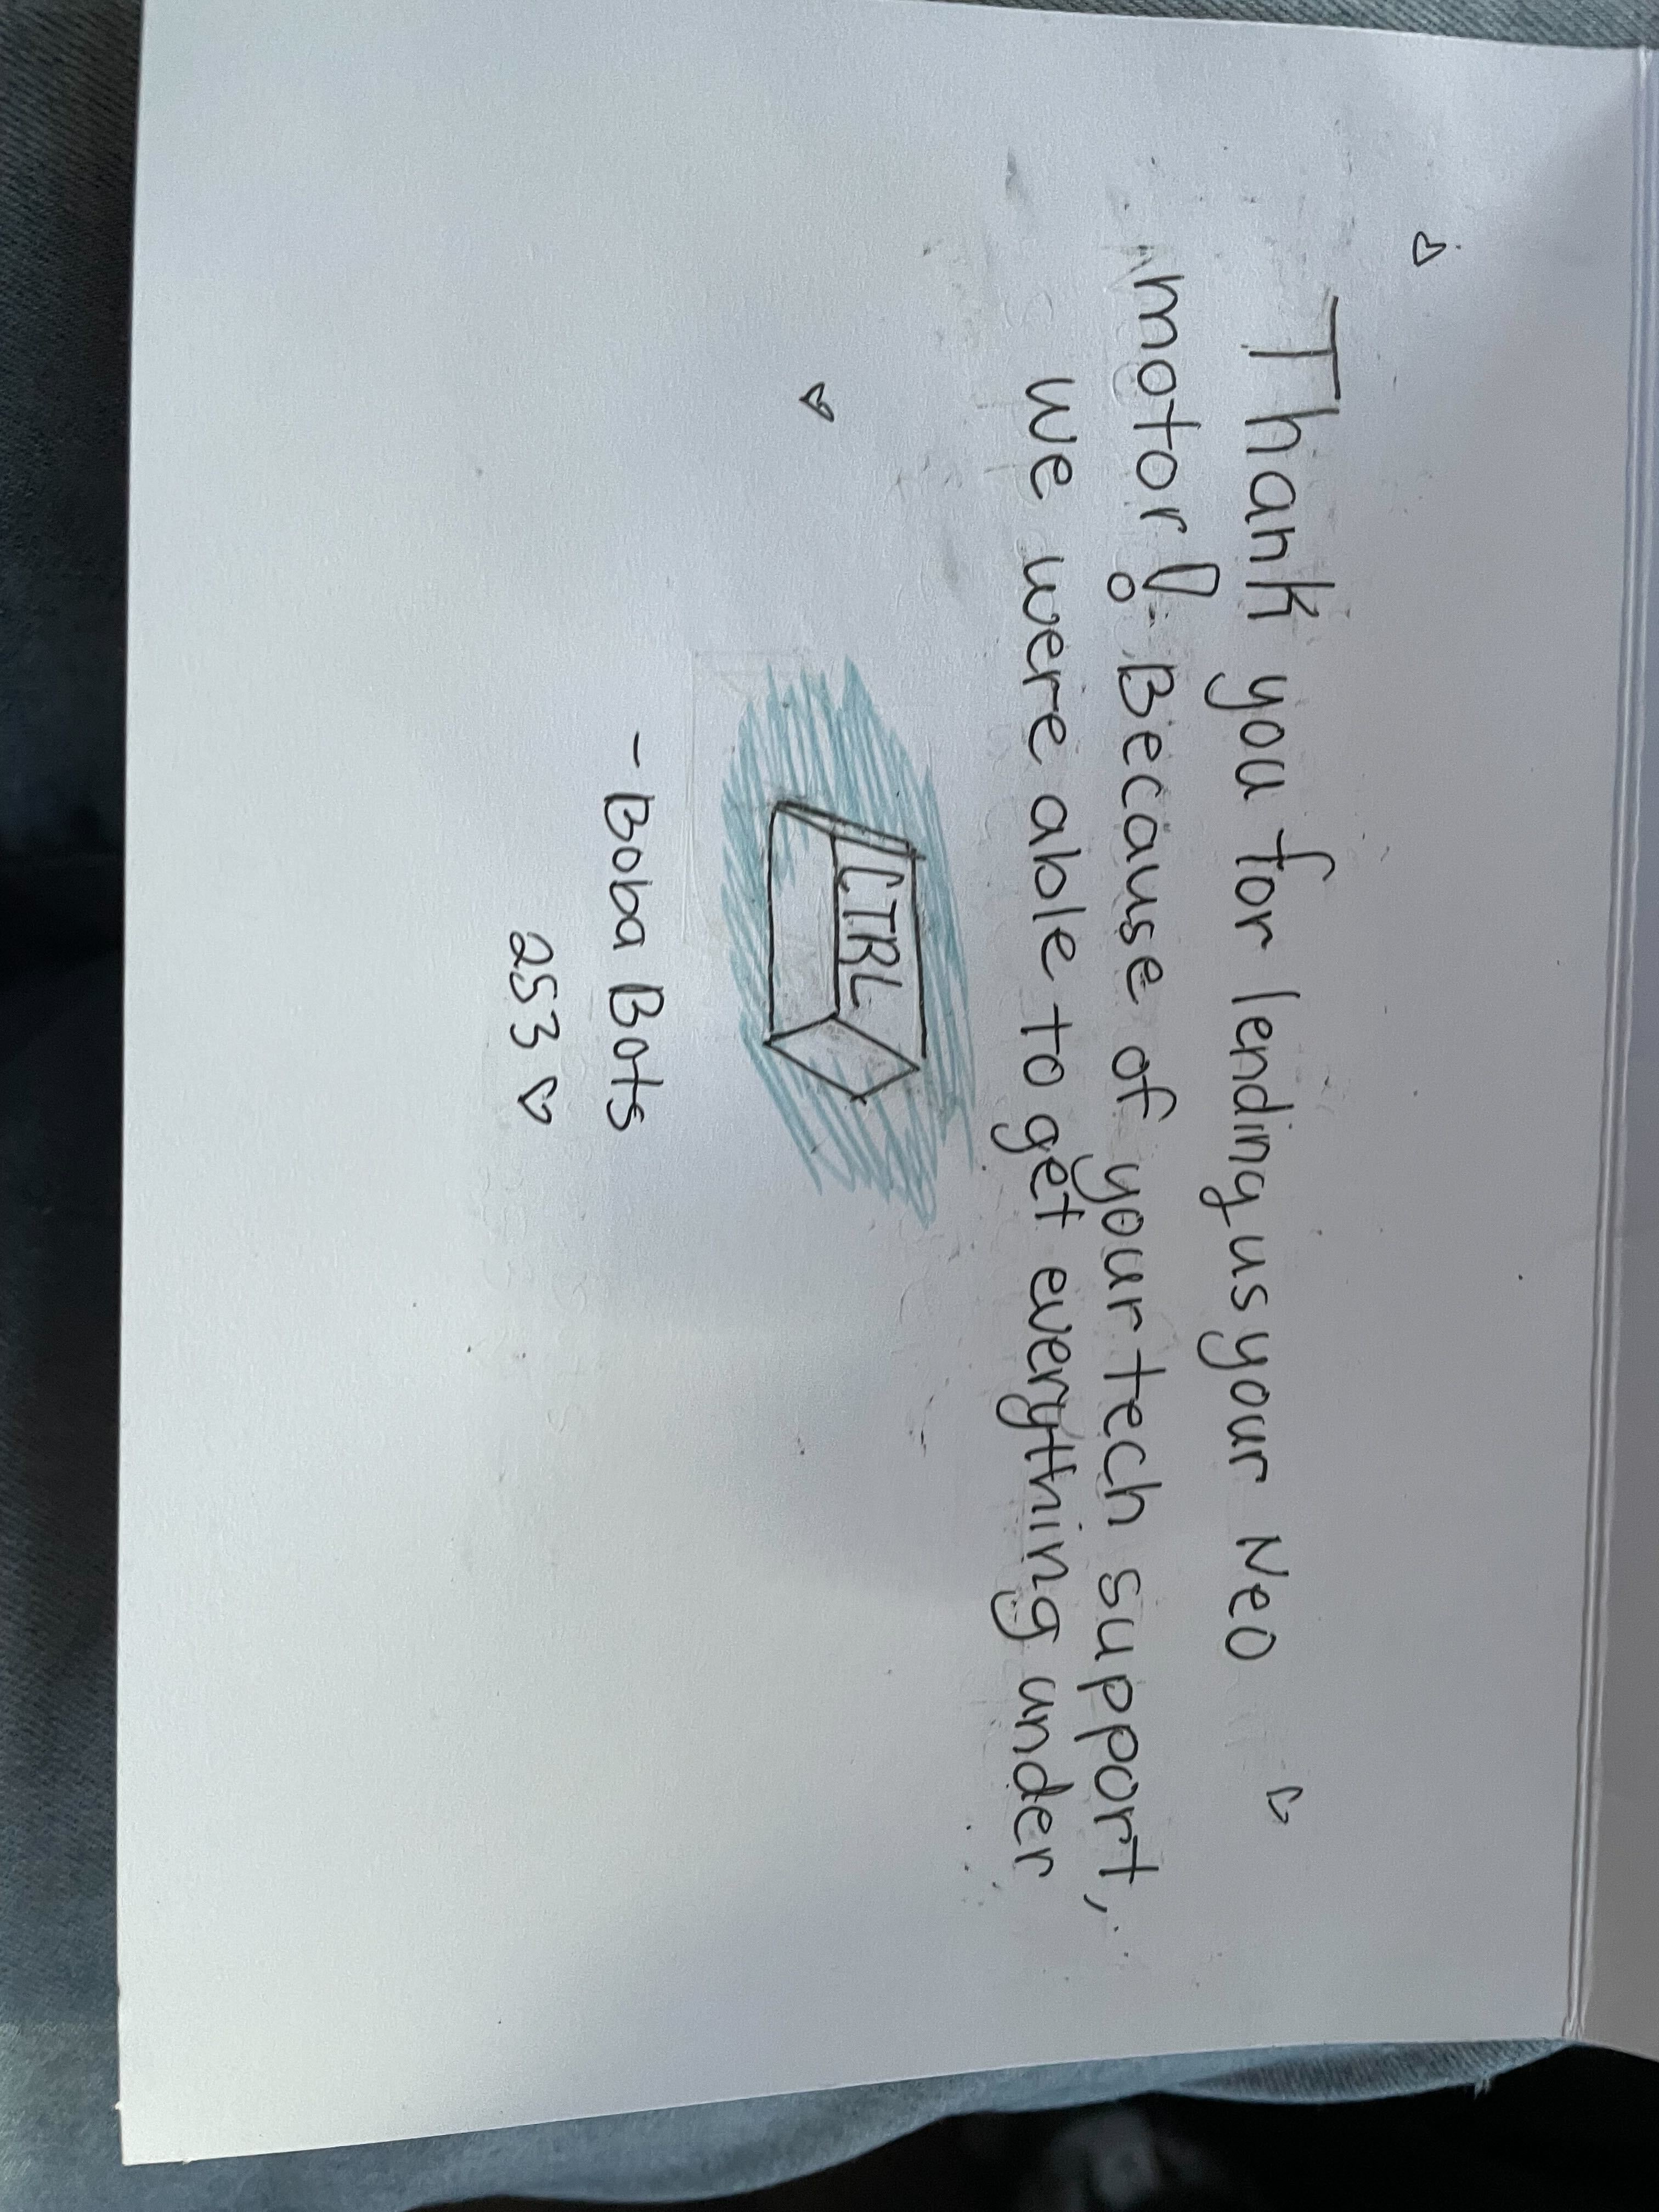 Thank you for lending us your Neo
motor! Because of your tech support,
we were able to get everything under
CTRL
- Boba Bots
253 ♡